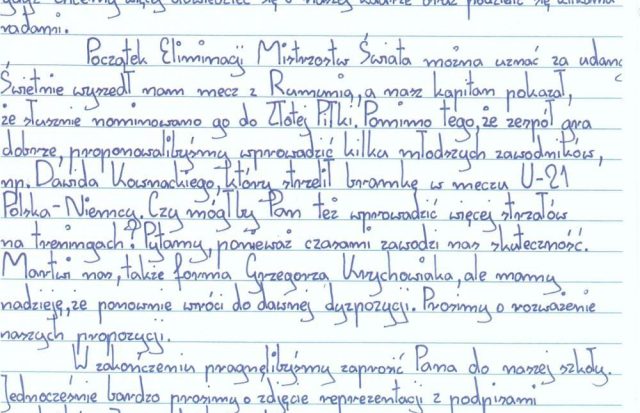 gdyż chcemy więcej dowiedzieć się o naszej kadrze oraz podzielić się kilkoma
radami.
Początek Eliminacji Mistrzostw Świata można uznać za udany
Świetnie wyszedł nam mecz z Rumunią, a nasz kapitan pokazał,
że słusznie nominowano go do Złotej Piłki. Pomimo tego, że zespół gra
dobrze, proponowalibyśmy wprowadzić kilka młodszych zawodników,
np. Dawida Kownackiego, który strzelił bramkę w meczu U-21
Polska-Niemcy. Czy mógłby Pan też wprowadzić więcej strzałów
na treningach? Pytamy, ponieważ czasami zawodzi nas skuteczność.
Martwi nas, także forma Grzegorza Krychowiaka, ale mamy
nadzieję, że ponownie wróci do dawnej dyspozycji. Prosimy o rozważenie
naszych propozycji.
W zakończeniu pragnęlibyśmy zaprosić Pana do naszej szkoły.
Jednocześnie bardzo prosimy o zdjęcie reprezentacji z podpisami